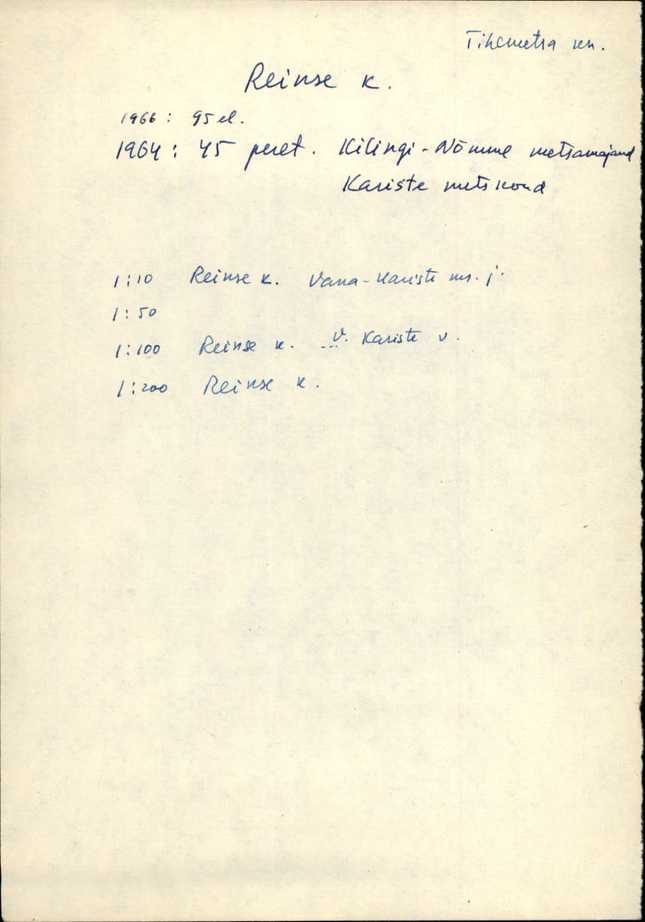 Tihemetsa kn.
Reinse k.
1966: 95 el.
1964: 45 peret. Kilingi-Nõmme metsamajand
Kariste metskond
1:10 Reinse k. Vana-Kariste j.
1:50
1:100 Reinse k. ... V. Kariste v.
1:200 Reinse k.